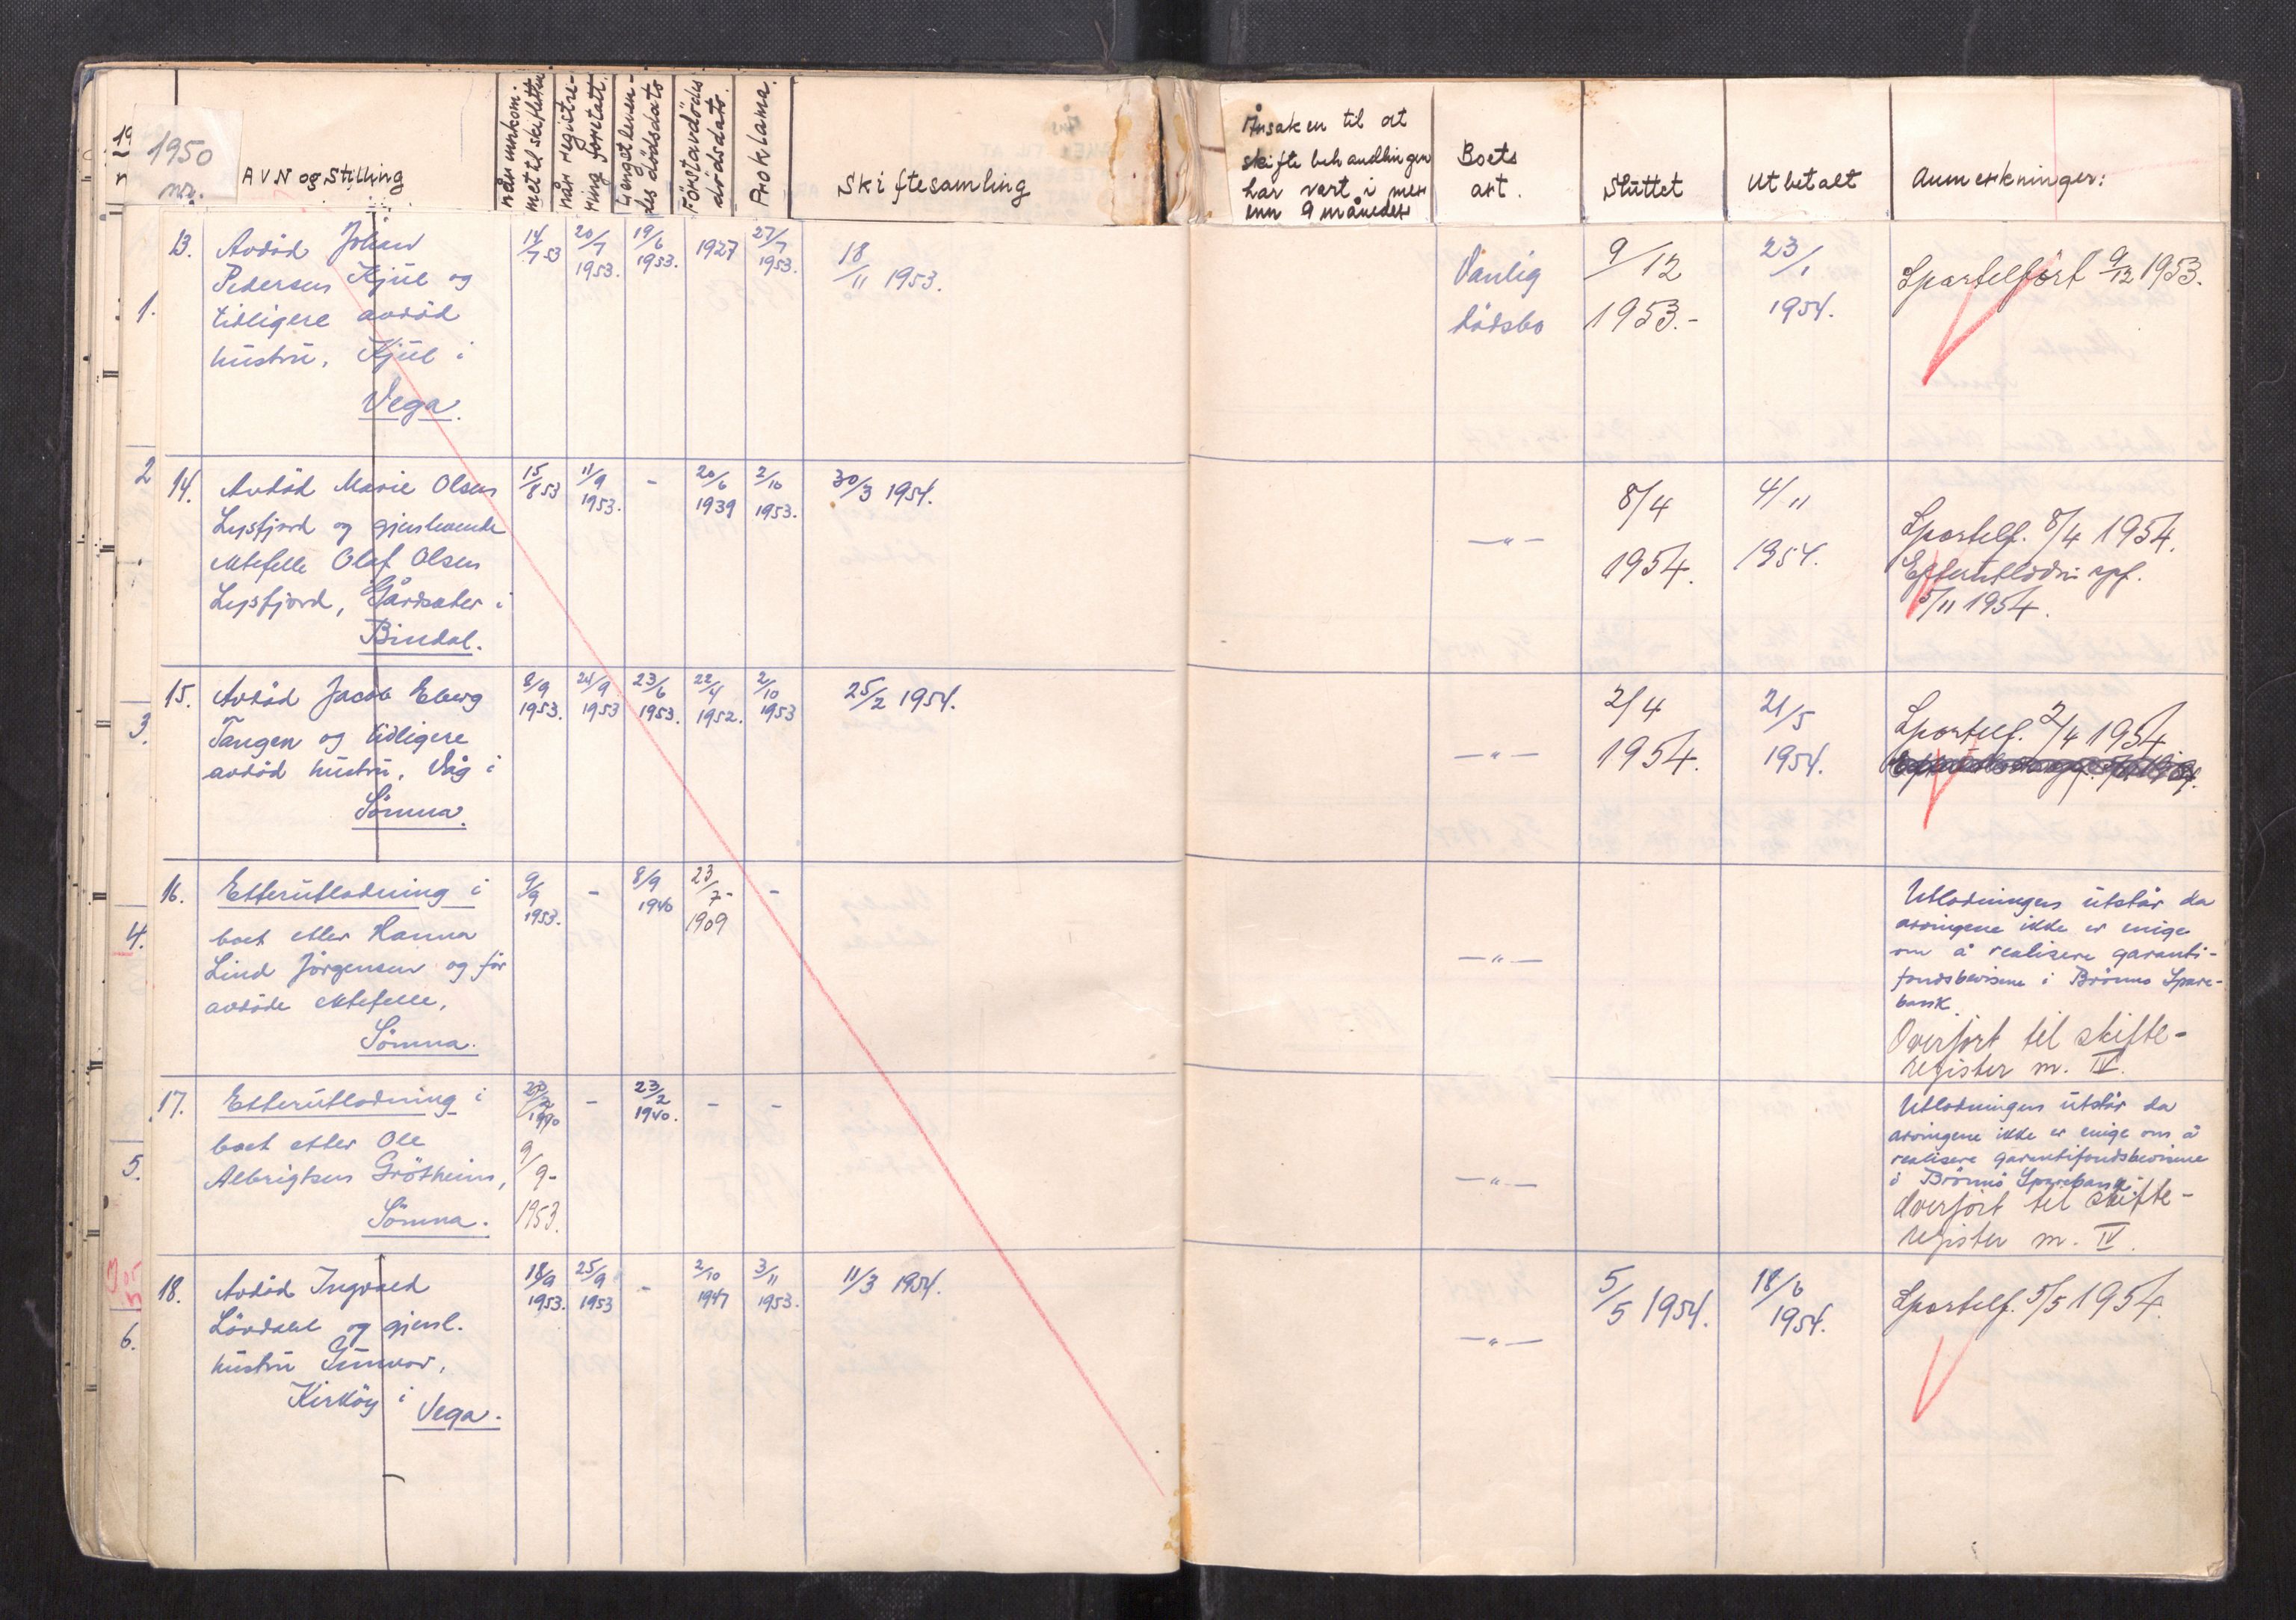 1950
nr.
AVN og Stilling
når innkom-
met til skifteretten
når registre-
ring foretatt.
Lengstleven-
des dødsdato
Førstavdødes
dødsdato.
Proklama.
Skiftesamling
Årsaken til at
skiftebehandlingen
har vart i mer
enn 9 måneder
Boets
art.
Sluttet
Utbetalt
Anmerkninger:
13. Avdöd Johan
Pedersen Kjül og
tidligere avdöd
hustru, Kjül i
Vega.
14/7 53
20/7 1953.
19/6 1953.
1927
27/7 1953.
18/11 1953.
Vanlig
dödsbo
9/12 1953.-
23/1 1954.
Sportelfört 9/12 1953.
14. Avdöd Marie Olsen
Lysfjord og gjenlevende
ektefelle Olaf Olsen
Lysfjord, Gårdsæter i
Bindal.
15/8 53
11/9 1953.
-
20/6 1939
2/10 1953.
30/3 1954.
—"—
8/4 1954.
4/11 1954.
Sportelf. 8/4 1954.
Efterutlodn. spf.
5/11 1954.
15. Avdöd Jacob Eberg
Tangen og tidligere
avdöd hustru, Våg i
Sömna.
8/9 1953.
24/9 1953
23/6 1953.
22/4 1952.
2/10 1953
25/2 1954.
—"—
2/4 1954.
21/5 1954.
Sportelf. 2/4 1954
16. Etterutlodning i
boet etter Hanna
Lind Jörgensen og för
avdöde ektefelle,
Sömna.
9/9 1953.
-
8/9 1940
23/7- 1909
-
—"—
Utlodningen utstår da
arvingene ikke er enige
om å realisere garanti-
fondsbevisene i Brönnö Spare-
bank.
Overfört til skifte-
register nr. IV.
17. Etterutlodning i
boet etter Ole
Albrigtsen Grötheim,
Sömna.
23/2 1940
9/9- 1953.
-
23/2 1940.
-
-
—"—
Utlodningen utstår da
arvingene ikke er enige om å
realisere garantifondsbevisene
i Brönnö Sparebank.
Overfört til skifte-
register nr. IV.
18. Avdöd Ingvald
Lövdahl og gjenl.
hustru Gunvor,
Kirköy i Vega.
18/9 1953.
25/9 1953
-
2/10 1947
3/11 1953.
11/3 1954.
—"—
5/5 1954.
18/6 1954.
Sportelf. 5/5 1954.
19
n
1.
2
3.
4.
5.
6.